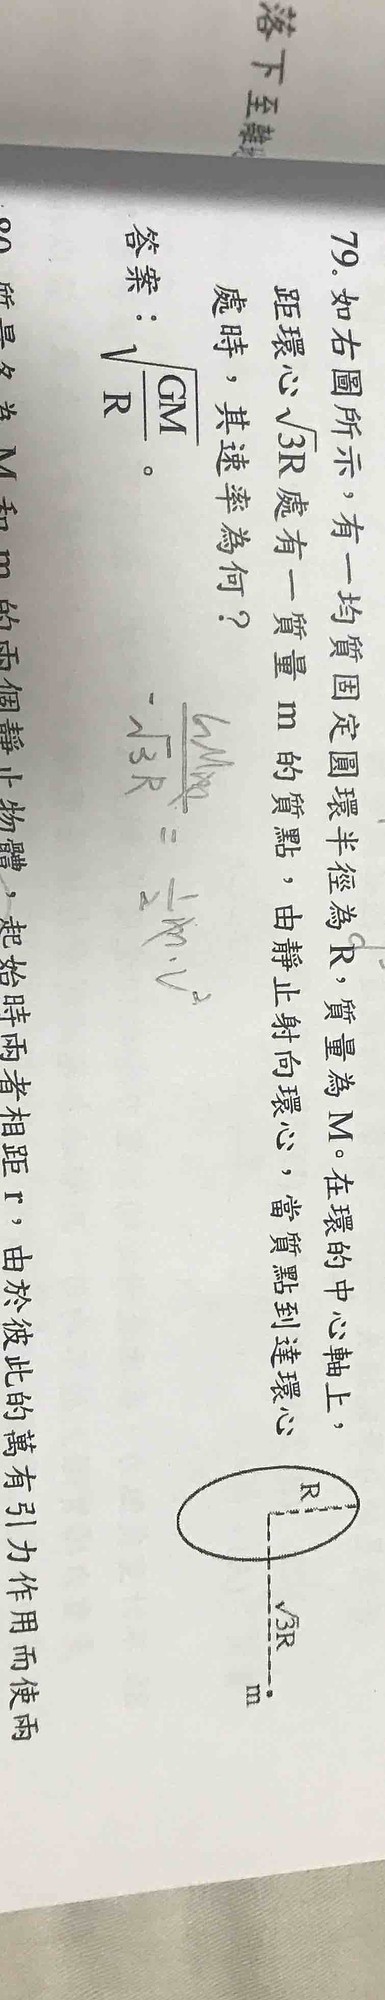 落下至離
79. 如右圖所示，有一均質固定圓環半徑為R，質量為M。在環的中心軸上，
距環心√3R處有一質量m的質點，由靜止射向環心，當質點到達環心
處時，其速率為何？
R
√3R
m
答案：√(GM/R)。
GMm/-√3R = 1/2 m·v²
80. 質量各為M和m的兩個靜止物體，起始時兩者相距r，由於彼此的萬有引力作用而使兩